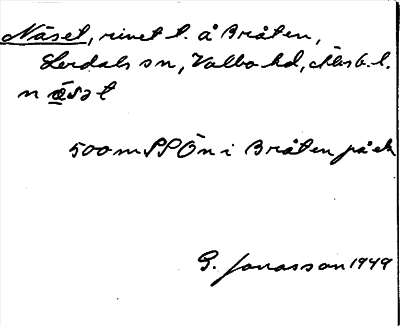 Näset, rivet t. å Bråten,
Lerdals sn, Valbo hd, Älvsb. l.
n ä̀sət
500 m SSÖ n i Bråten på ek
G. Jonasson 1949